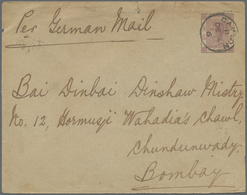 Per German Mail
Bai Dinbai Dinshaw Mistry
No. 12, Hormusji Wahadia's Chawl,
Chundunwady,
Bombay